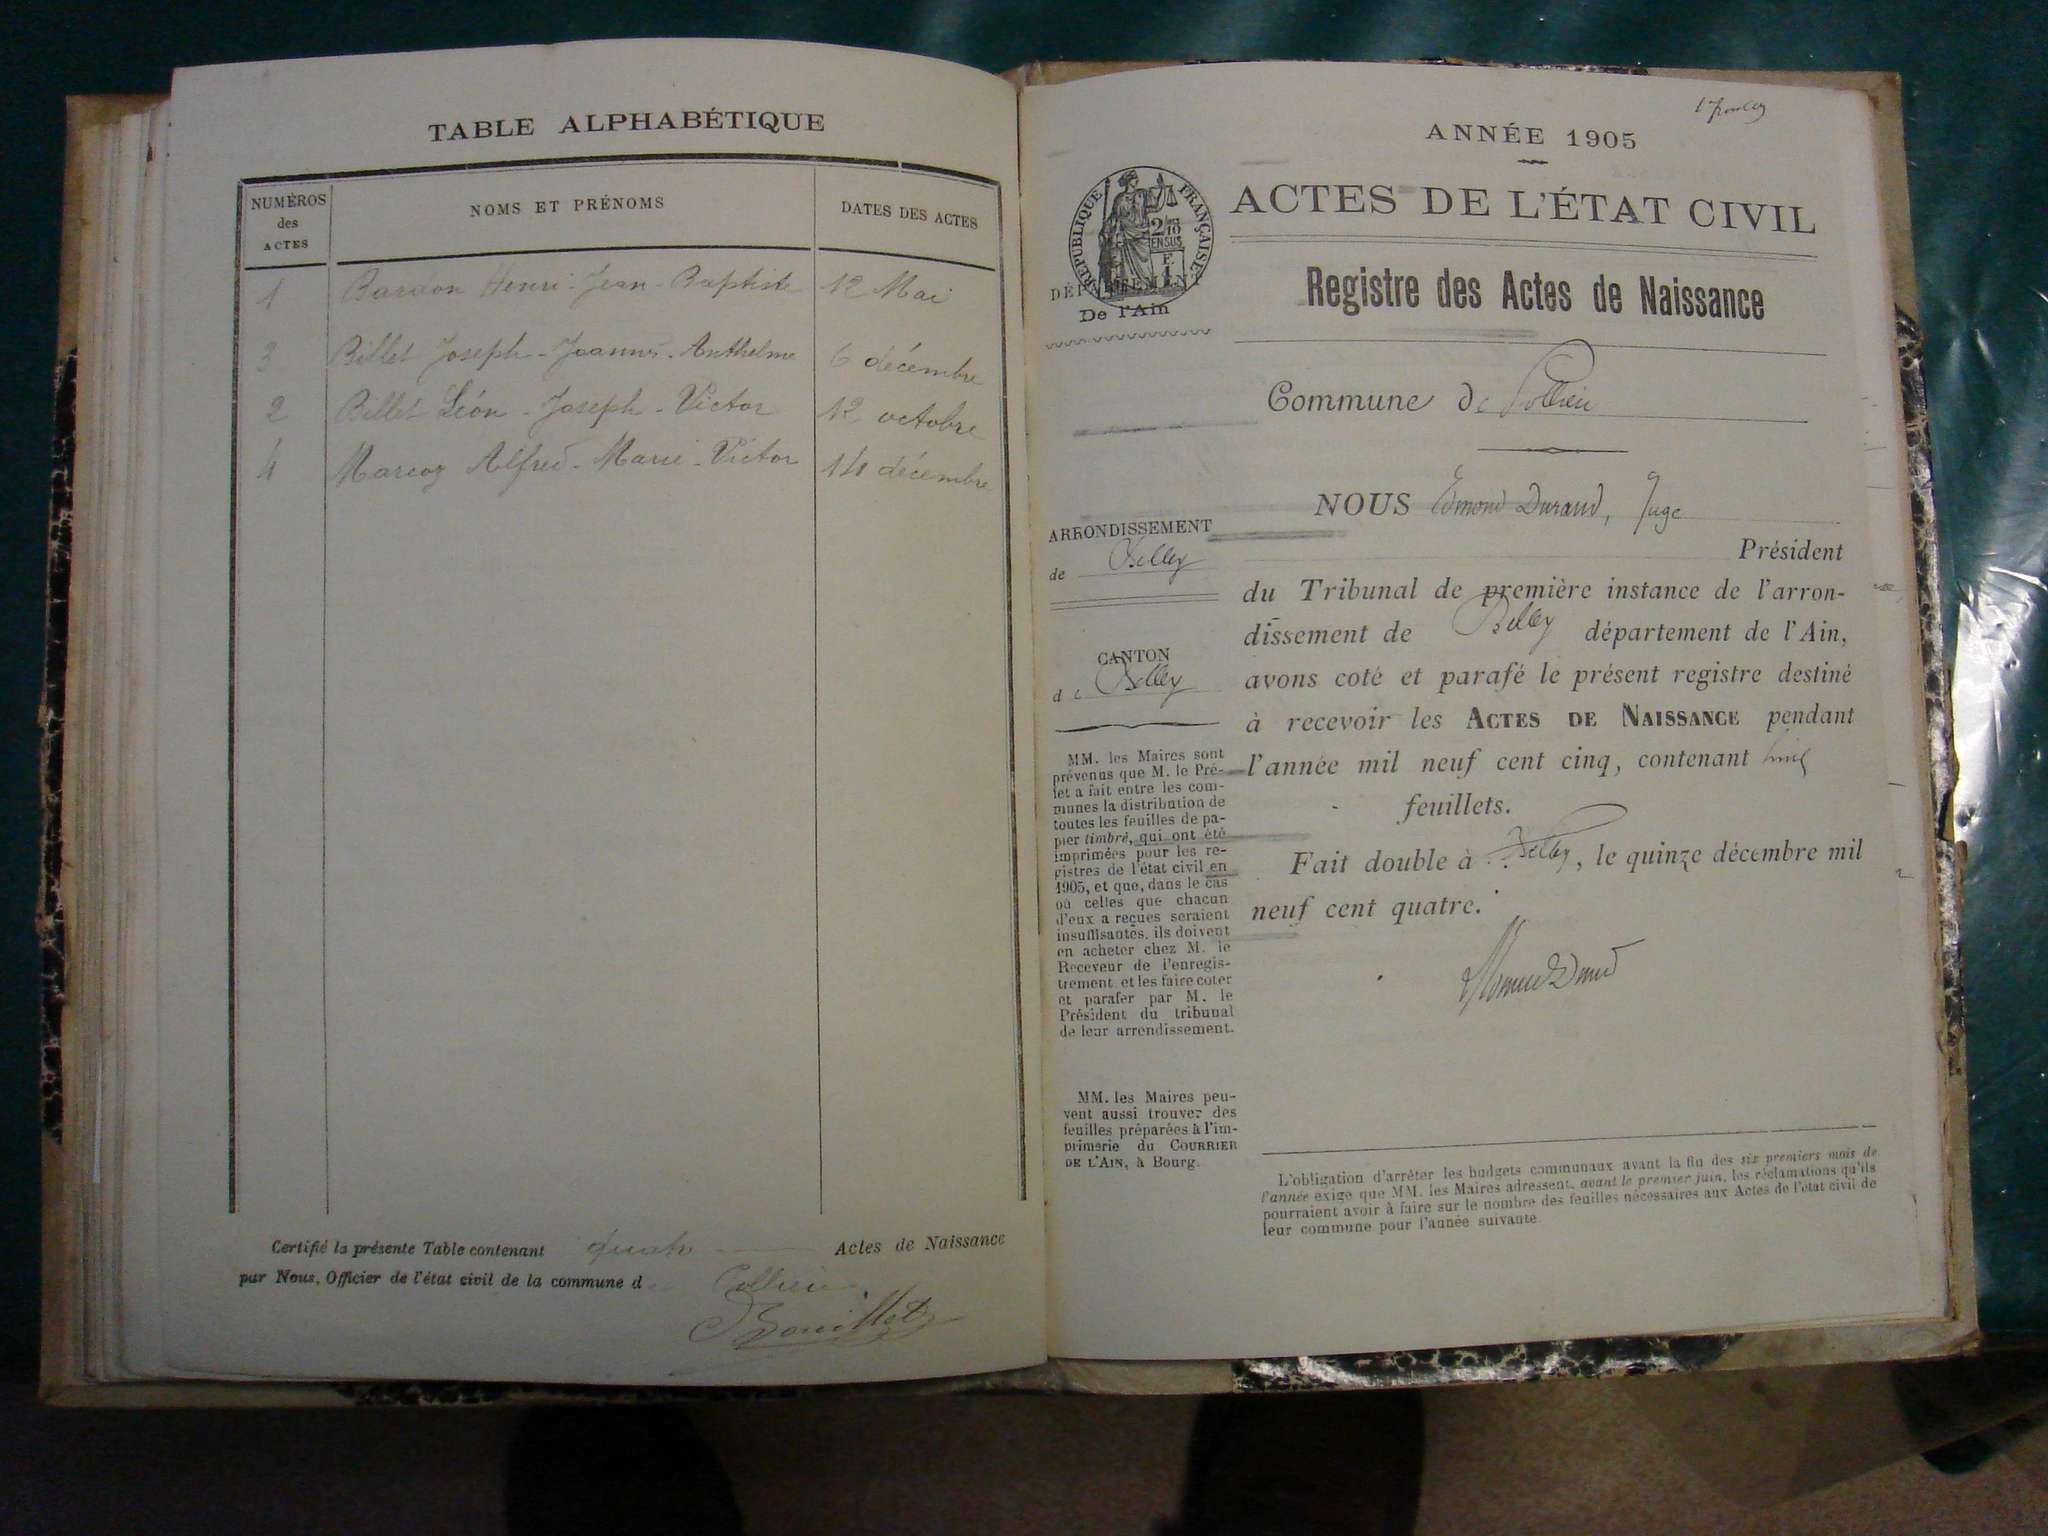 TABLE ALPHABÉTIQUE
NUMÉROS
des
ACTES
NOMS ET PRÉNOMS
DATES DES ACTES
1 Bardon Henri-Jean-Baptiste 12 Mai
3 Billet Joseph-Joannès-Anthelme 6 décembre
2 Billet Léon-Joseph-Victor 12 octobre
4 Marcoz Alfred-Marie-Victor 14 décembre
Certifié la présente Table contenant quatre Actes de Naissance
par Nous, Officier de l'état civil de la commune d Pollieu
ANNÉE 1905
ACTES DE L'ÉTAT CIVIL
RÉPUBLIQUE FRANÇAISE
2/10
EN SUS
E
1
DÉPARTEMENT
De l'Ain
Registre des Actes de Naissance
Commune de Pollieu
ARRONDISSEMENT
de Belley
CANTON
de Belley
MM. les Maires sont
prévenus que M. le Pré-
fet a fait entre les com-
munes la distribution de
toutes les feuilles de pa-
pier timbré, qui ont été
imprimées pour les re-
gistres de l'état civil en
1905, et que, dans le cas
où celles que chacun
d'eux a reçues seraient
insuffisantes, ils doivent
en acheter chez M. le
Receveur de l'enregis-
trement et les faire coter
et parafer par M. le
Président du tribunal
de leur arrondissement.
MM. les Maires peu-
vent aussi trouver des
feuilles préparées à l'im-
primerie du COURRIER
DE L'AIN, à Bourg.
NOUS Edmond Durand, Juge
Président
du Tribunal de première instance de l'arron-
dissement de Belley département de l'Ain,
avons coté et parafé le présent registre destiné
à recevoir les ACTES DE NAISSANCE pendant
l'année mil neuf cent cinq, contenant
feuillets.
Fait double à Belley, le quinze décembre mil
neuf cent quatre.
L'obligation d'arrêter les budgets communaux avant la fin des six premiers mois de
l'année exige que MM. les Maires adressent, avant le premier juin, les réclamations qu'ils
pourraient avoir à faire sur le nombre des feuilles nécessaires aux Actes de l'état civil de
leur commune pour l'année suivante.